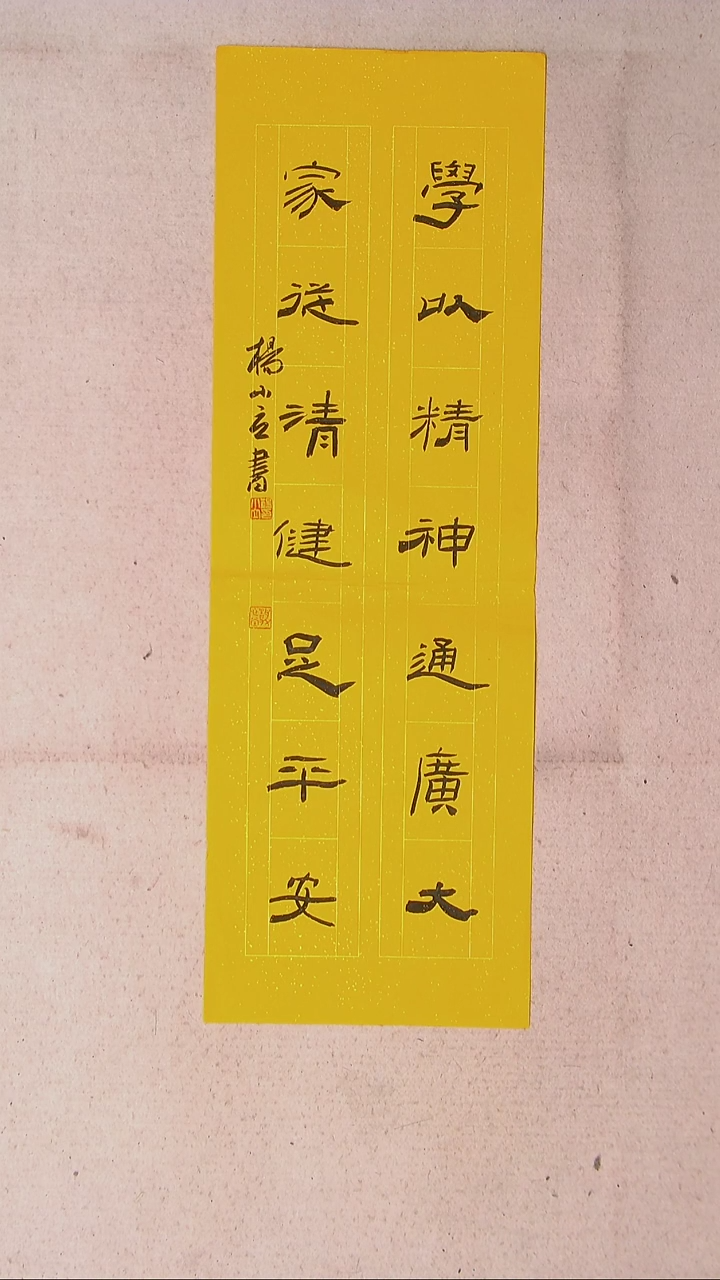 學以精神通廣大
家從清健足平安
楊小立書